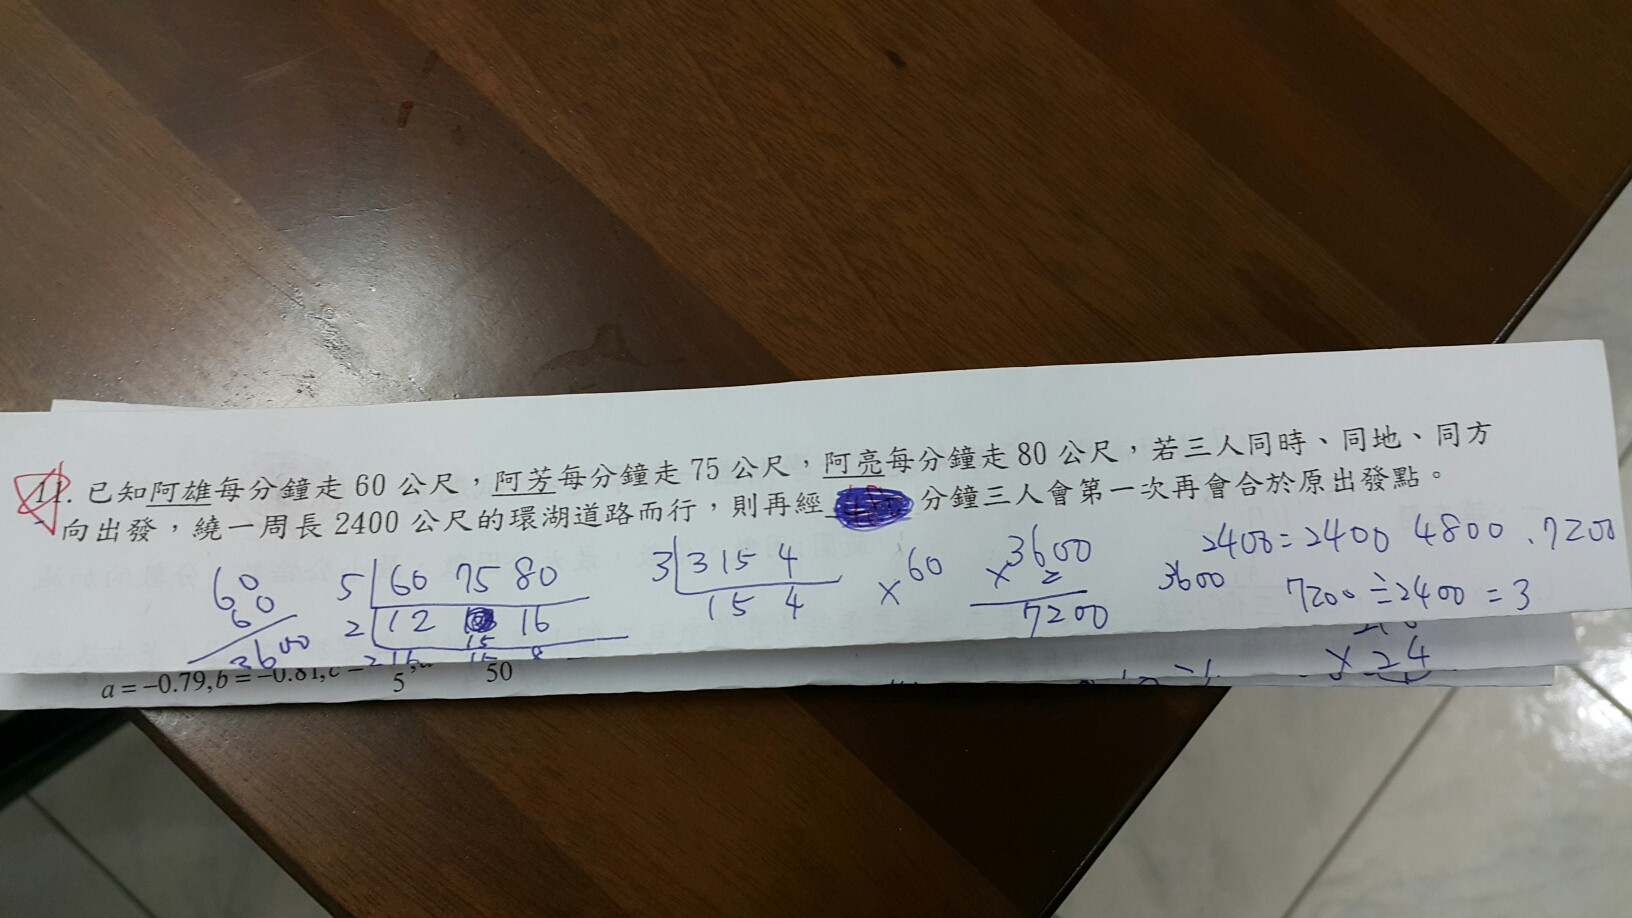 11. 已知阿雄每分鐘走 60 公尺，阿芳每分鐘走 75 公尺，阿亮每分鐘走 80 公尺，若三人同時、同地、同方
向出發，繞一周長 2400 公尺的環湖道路而行，則再經 分鐘三人會第一次再會合於原出發點。
60
60
3600
5 60 75 80
2 12 16
15
3 3 15 4
1 5 4
×60
3600
× 2
7200
3600
2400=2400 4800 .7200
7200÷2400=3
× 24
a=−0.79,b=−0.81,c=
5
50